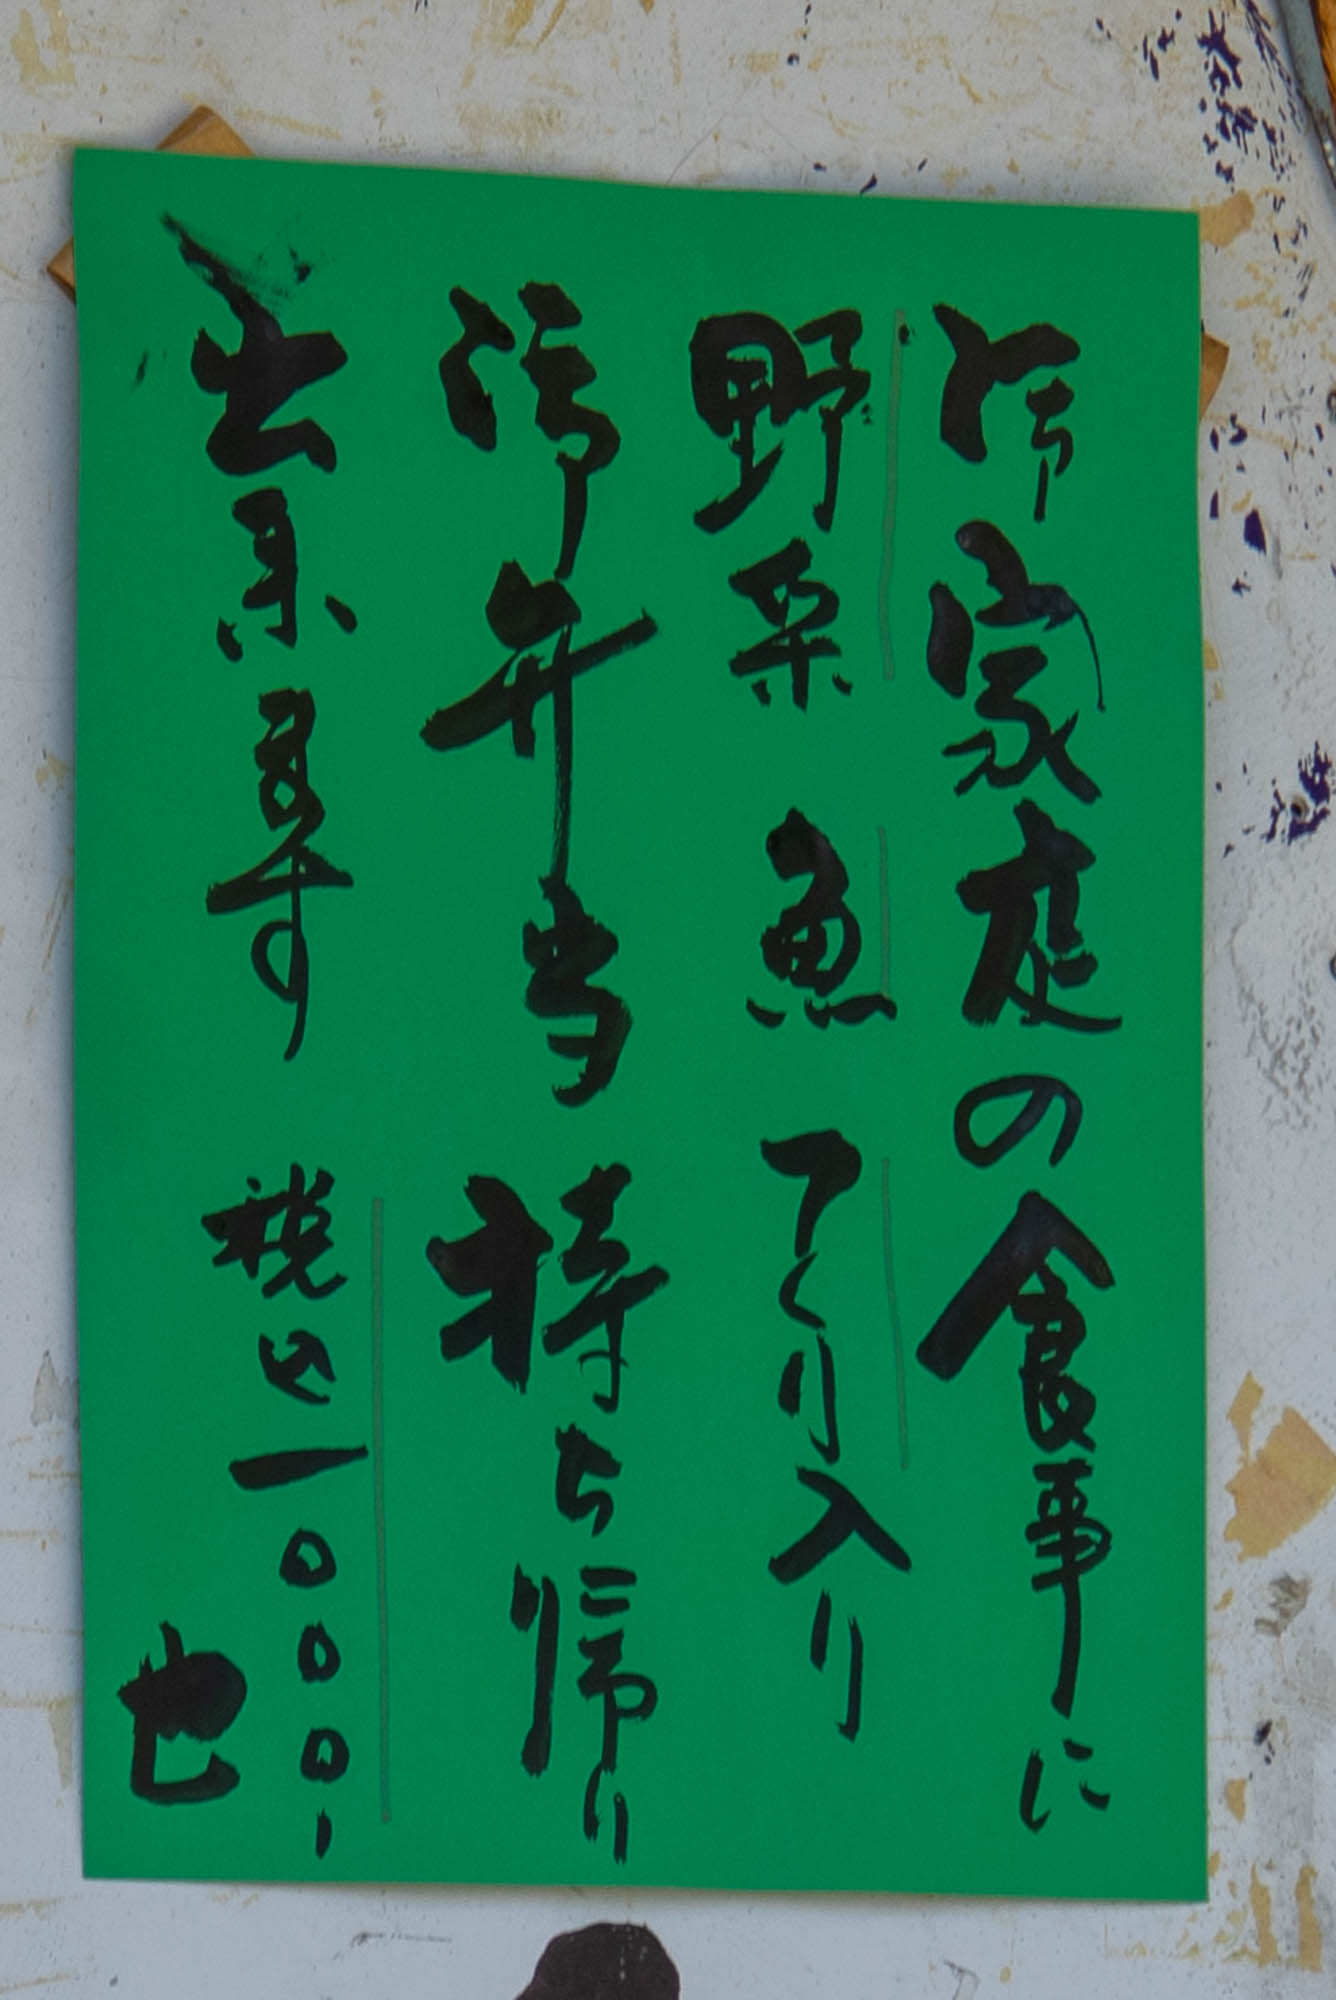 御家庭の食事に
野菜 魚 つくり入り
御弁当 持ち帰り
出来ます 税込一〇〇〇、
也